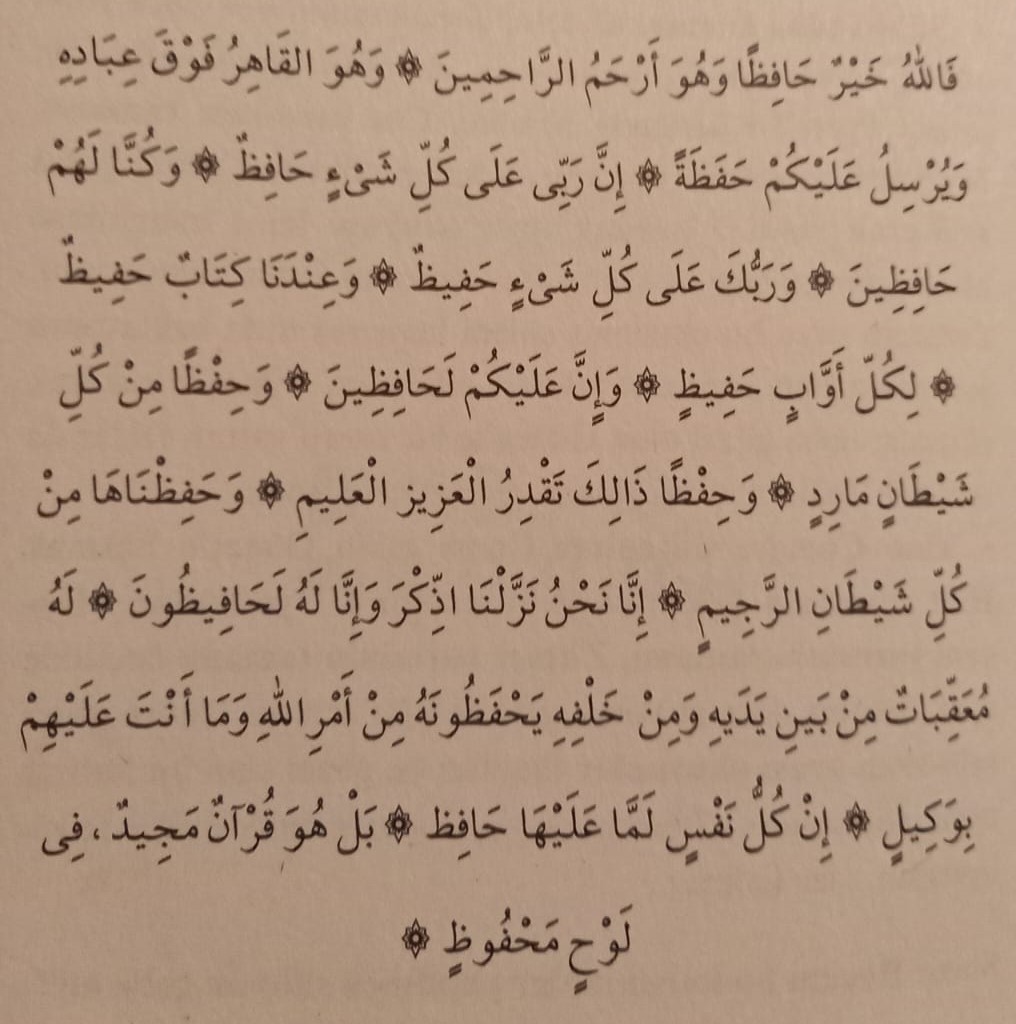 فَاللهُ خَيْرٌ حَافِظًا وَهُوَ أَرْحَمُ الرَّاحِمِينَ ۞ وَهُوَ القَاهِرُ فَوْقَ عِبَادِهِ
وَيُرْسِلُ عَلَيْكُمْ حَفَظَةً ۞ إِنَّ رَبِّى عَلَى كُلِّ شَىْءٍ حَافِظٌ ۞ وَكُنَّا لَهُمْ
حَافِظِينَ ۞ وَرَبُّكَ عَلَى كُلِّ شَىْءٍ حَفِيظٌ ۞ وَعِنْدَنَا كِتَابٌ حَفِيظٌ
۞ لِكُلِّ أَوَّابٍ حَفِيظٍ ۞ وَإِنَّ عَلَيْكُمْ لَحَافِظِينَ ۞ وَحِفْظًا مِنْ كُلِّ
شَيْطَانٍ مَارِدٍ ۞ وَحِفْظًا ذَالِكَ تَقْدِرُ الْعَزِيزِ الْعَلِيمِ ۞ وَحَفِظْنَاهَا مِنْ
كُلِّ شَيْطَانِ الرَّجِيمٍ ۞ إِنَّا نَحْنُ نَزَّلْنَا اذِّكْرَ وَإِنَّا لَهُ لَحَافِيظُونَ ۞ لَهُ
مُعَقِّبَاتٌ مِنْ بَينِ يَدَيهِ وَمِنْ خَلْفِهِ يَحْفَظُونَهُ مِنْ أَمْرِ اللهِ وَمَا أَنْتَ عَلَيْهِمْ
بِوَكِيلٍ ۞ إِنْ كُلُّ نَفْسٍ لَمَّا عَلَيْهَا حَافِظ ۞ بَلْ هُوَ قُرْآنٌ مَجِيدٌ ، فِى
لَوْحٍ مَحْفُوظٍ ۞